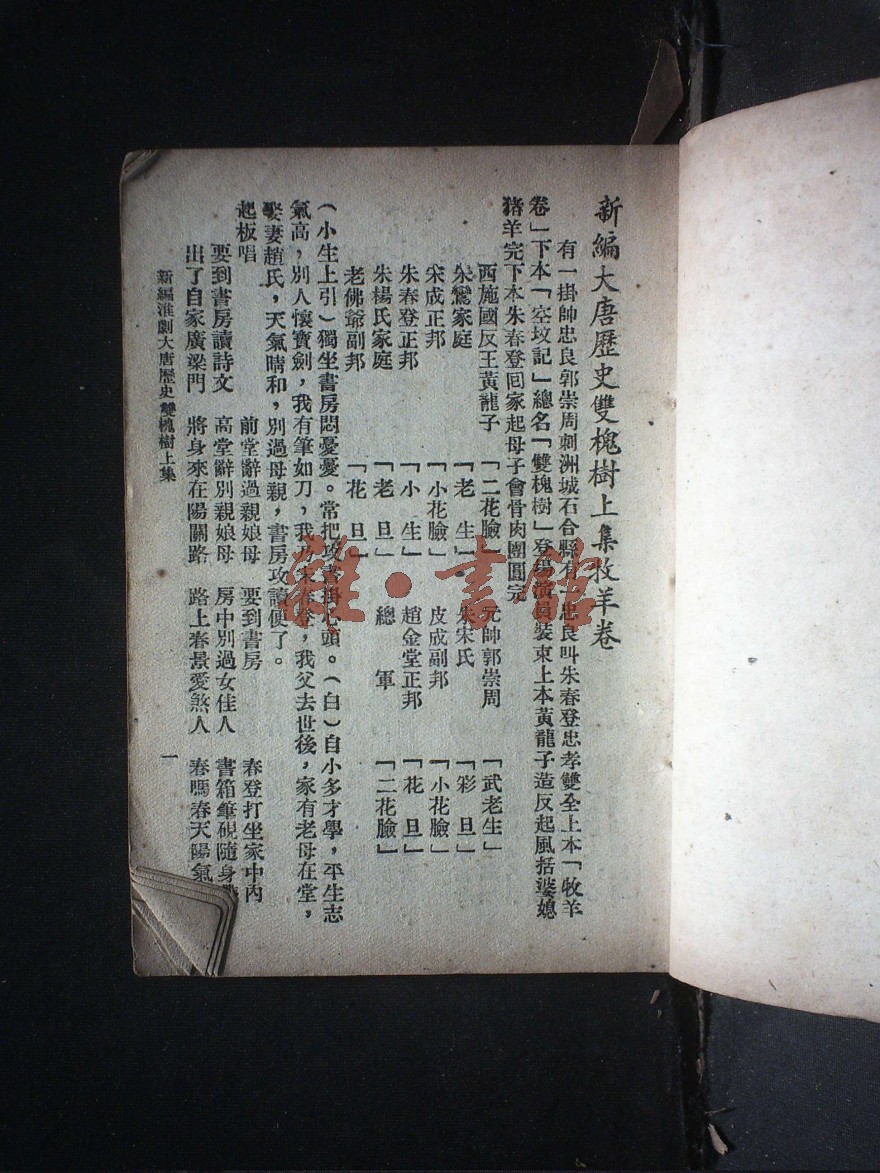 新編大唐歷史雙槐樹上集牧羊卷
有一掛帥忠良郭崇周刺洲城石合縣有一忠良叫朱春登忠孝雙全上本「牧羊
卷」下本「空坟記」總名「雙槐樹」登場演員裝束上本黃龍子造反起風括婆媳
猪羊完下本朱春登回家起母子會骨肉團圓完
西施國反王黃龍子 「二花臉」 元帥郭崇周 「武老生」
朱鸞家庭 「老 生」 朱宋氏 「彩 旦」
宋成正邦 「小花臉」 皮成副邦 「小花臉」
朱春登正邦 「小 生」 趙金堂正邦 「花 旦」
朱楊氏家庭 「老 旦」 總 軍 「二花臉」
老佛爺副邦 「花 旦」
（小生上引）獨坐書房悶憂憂。常把攻書掛心頭。（白）自小多才學，平生志
氣高，別人懷寶劍，我有筆如刀，我乃朱春登，我父去世後，家有老母在堂，
娶妻趙氏，天氣晴和，別過母親，書房攻讀便了。
起板唱 前堂辭過親娘母 要到書房 春登打坐家中內
要到書房讀詩文 高堂辭別親娘母 房中別過女佳人 書箱筆硯隨身
出了自家廣梁門 將身來在陽關路 路上春景愛煞人 春嗎春天陽氣
新編淮劇大唐歷史雙槐樹上集 一
雜·書館